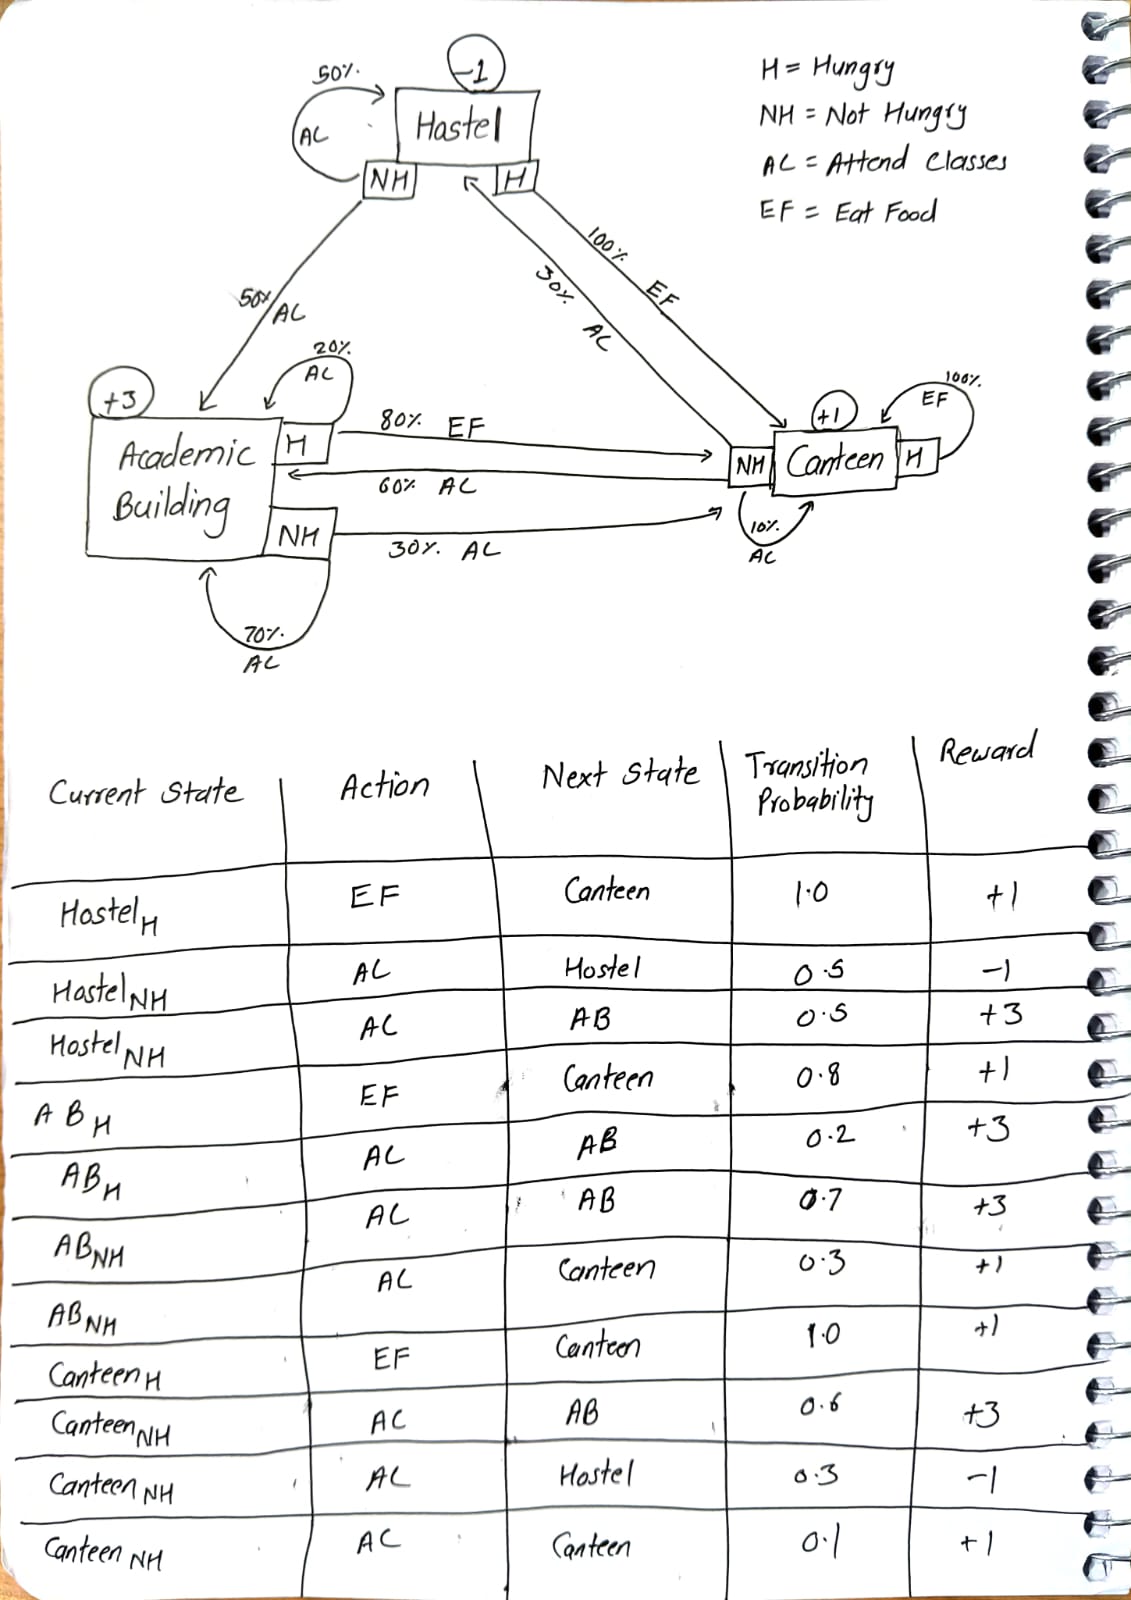 50%
-1
H = Hungry
Hostel
NH = Not Hungry
AC
NH
H
AC = Attend Classes
EF = Eat Food
100% EF
30% AC
50% AC
20%
AC
+3
100%
EF
+1
80% EF
H
Academic
Building
NH
Canteen
H
60% AC
NH
30% AC
10%
AC
70%
AC
Current State Action Next State Transition Probability Reward
Hostel H EF Canteen 1.0 +1
Hostel NH AC Hostel 0.5 -1
Hostel NH AC AB 0.5 +3
AB H EF Canteen 0.8 +1
AB H AC AB 0.2 +3
AB NH AC AB 0.7 +3
AB NH AC Canteen 0.3 +1
Canteen H EF Canteen 1.0 +1
Canteen NH AC AB 0.6 +3
Canteen NH AC Hostel 0.3 -1
Canteen NH AC Canteen 0.1 +1